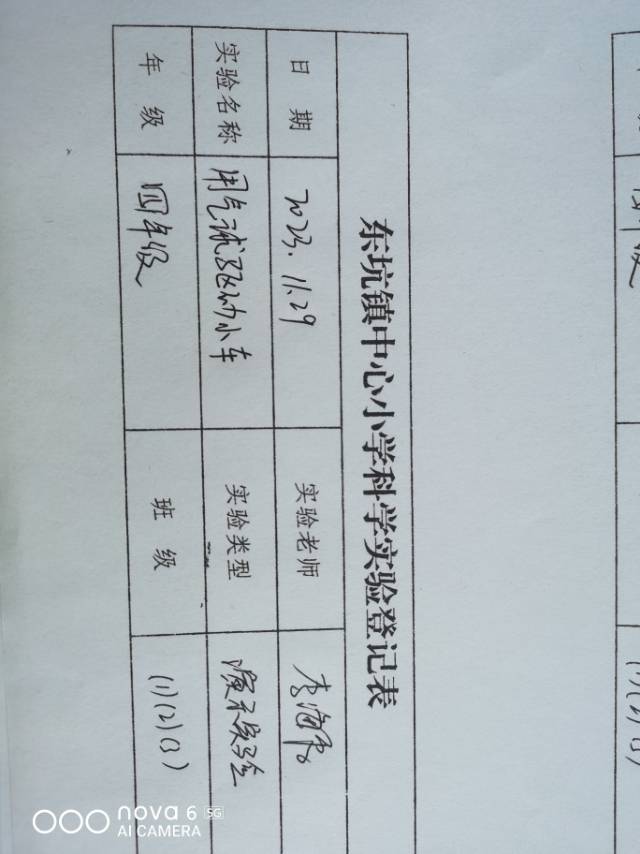 东坑镇中心小学科学实验登记表
日 期 2023.11.29 实验老师
实验名称 用气试驱动小车 实验类型 演示实验
年 级 四年级 班 级 (1)(2)(3)
(1)(2)(3)
nova 6 5G
AI CAMERA